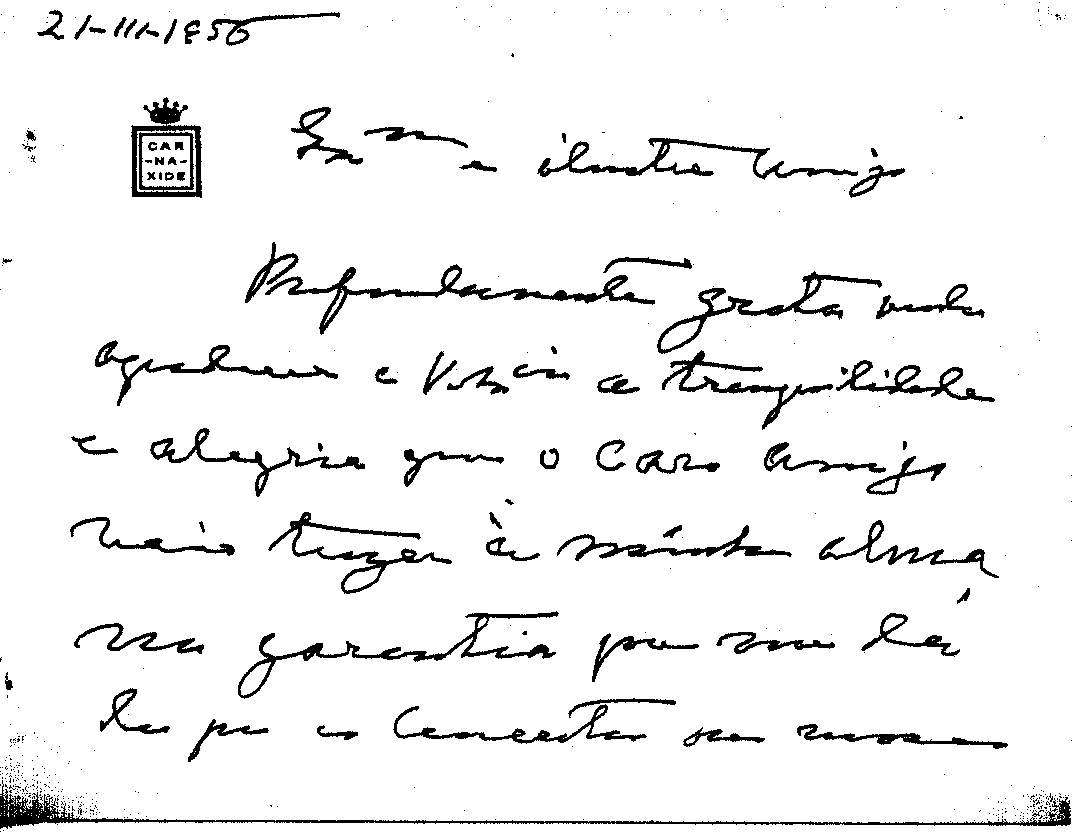 21-III-1956
CAR
-NA-
XIDE
Exmo e ilustre Amigo
Profundamente grata venho
agradecer a V. Excia a tranquilidade
e alegria que o Caro Amigo
veio trazer à minha alma
na garantia que me dá
de que